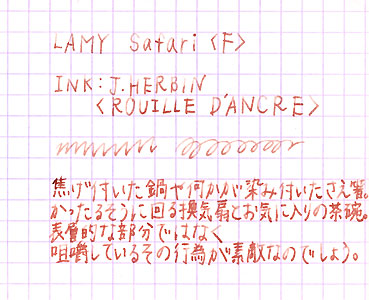 LAMY Safari <F>
INK: J.HERBIN
<ROUILLE D'ANCRE>
焦げ付いた鍋や何かが染み付いたさえ箸。
かったるそうに回る換気扇とお気に入りの茶碗。
表層的な部分ではなく
咀嚼しているその行為が素敵なのでしょう。